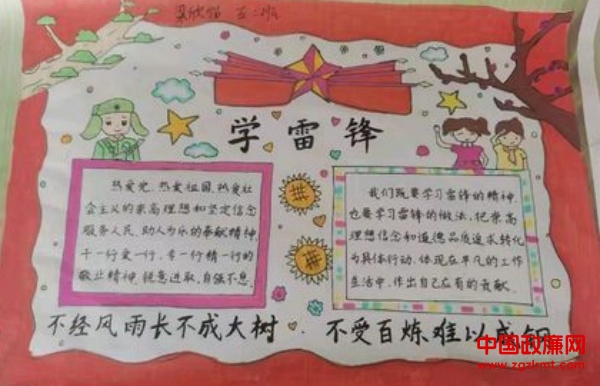 五二班
学雷锋
热爱党、热爱祖国、热爱社
会主义的崇高理想和坚定信念
服务人民、助人为乐的奉献精神,
干一行爱一行、专一行精一行的
敬业精神,锐意进取、自强不息。
我们既要学习雷锋的精神,
也要学习雷锋的做法,把崇高
理想信念和道德品质追求转化
为具体行动,体现在平凡的工作
生活中,作出自己应有的贡献。
不经风雨长不成大树 . 不受百炼难以成钢
中国政廉网
www.zgzkmt.com